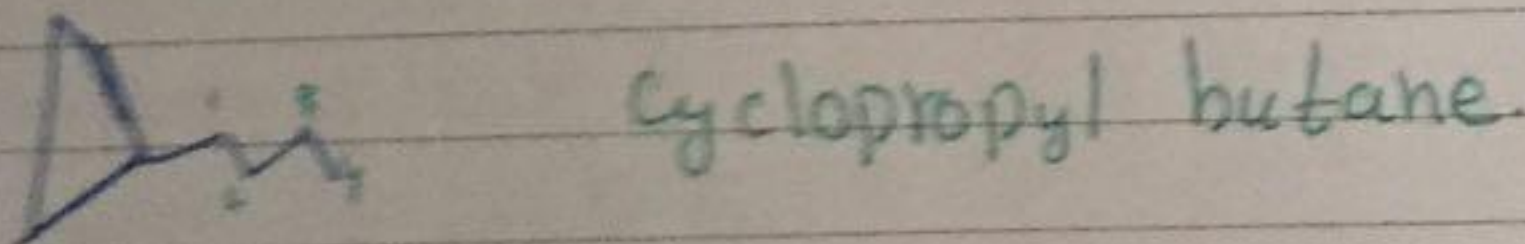 3
Cyclopropyl butane.
2 4